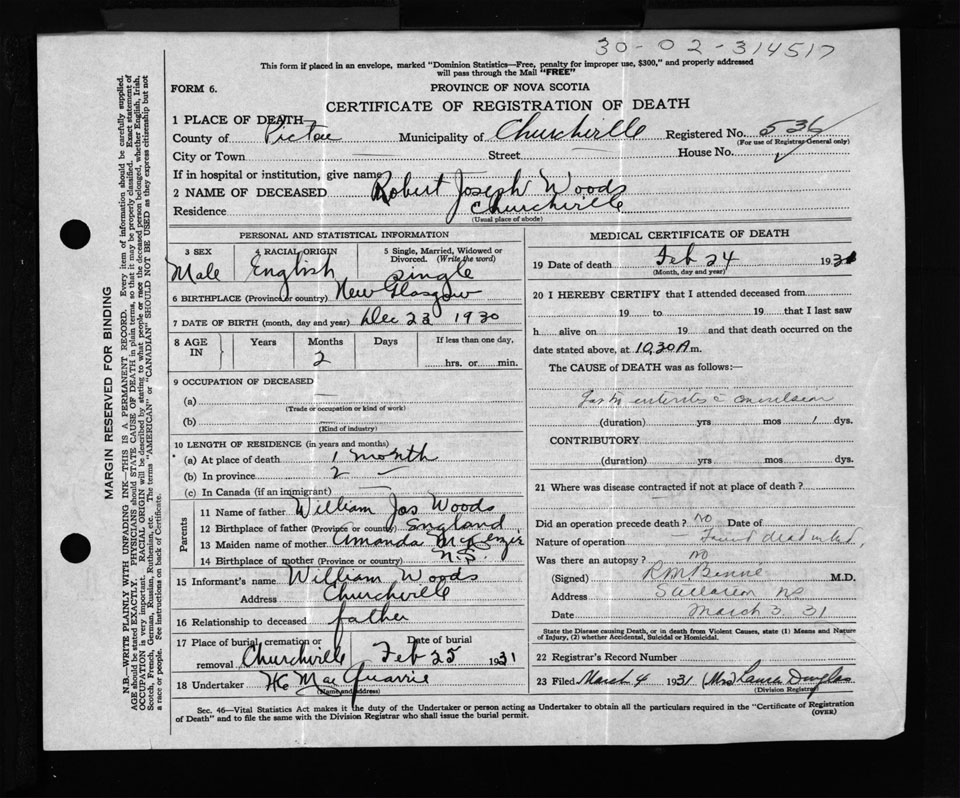 30-02-314517
This form if placed in an envelope, marked "Dominion Statistics—Free, penalty for improper use, $300," and properly addressed
will pass through the Mail "FREE"
FORM 6.
PROVINCE OF NOVA SCOTIA
CERTIFICATE OF REGISTRATION OF DEATH
1 PLACE OF DEATH
County of Pictou Municipality of Churchville Registered No. 536
(For use of Registrar-General only)
City or Town — Street — House No.
If in hospital or institution, give name
2 NAME OF DECEASED Robert Joseph Woods
Residence Churchville
(Usual place of abode)
PERSONAL AND STATISTICAL INFORMATION
3 SEX 4 RACIAL ORIGIN 5 Single, Married, Widowed or Divorced. (Write the word)
Male English Single
6 BIRTHPLACE (Province or country) New Glasgow
7 DATE OF BIRTH (month, day and year) Dec 23 1930
8 AGE IN Years Months Days If less than one day,
2 hrs. or min.
9 OCCUPATION OF DECEASED
(a) —
(Trade or occupation or kind of work)
(b) —
(Kind of industry)
10 LENGTH OF RESIDENCE (in years and months)
(a) At place of death 1 month
(b) In province 2 —
(c) In Canada (if an immigrant) —
Parents
11 Name of father William Jos Woods
12 Birthplace of father (Province or country) England
13 Maiden name of mother Amanda McKenzie
14 Birthplace of mother (Province or country) N.S.
15 Informant's name William Woods
Address Churchville
16 Relationship to deceased father
17 Place of burial, cremation or removal Churchville Date of burial Feb 25 1931
18 Undertaker H C MacQuarrie
(Name and address)
MEDICAL CERTIFICATE OF DEATH
19 Date of death Feb 24 1931
(Month, day and year)
20 I HEREBY CERTIFY that I attended deceased from
19 to 19 that I last saw
h alive on 19 and that death occurred on the
date stated above, at 10,30 A m.
The CAUSE of DEATH was as follows:—
enteritis
(duration) yrs mos 1 dys.
CONTRIBUTORY
(duration) yrs mos dys.
21 Where was disease contracted if not at place of death?
Did an operation precede death? No Date of
Nature of operation — Found dead in bed,
Was there an autopsy? no
(Signed) M.D.
Address NS
Date March 3, 31
State the Disease causing Death, or in death from Violent Causes, state (1) Means and Nature
of Injury, (2) whether Accidental, Suicidal or Homicidal.
22 Registrar's Record Number
23 Filed March 4 1931 (Mrs) Douglas
(Division Registrar)
Sec. 46—Vital Statistics Act makes it the duty of the Undertaker or person acting as Undertaker to obtain all the particulars required in the "Certificate of Registration
of Death" and to file the same with the Division Registrar who shall issue the burial permit.
(OVER)
MARGIN RESERVED FOR BINDING
N.B.—WRITE PLAINLY WITH UNFADING INK—THIS IS A PERMANENT RECORD. Every item of information should be carefully supplied.
AGE should be stated EXACTLY. PHYSICIANS should STATE CAUSE OF DEATH in plain terms, so that it may be properly classified. Exact statement of
OCCUPATION is very important. RACIAL ORIGIN will be described by stating to what people or race the deceased person belonged, whether English, Irish,
Scotch, French, German, Russian, Ruthenian, etc. The terms "AMERICAN" or "CANADIAN" SHOULD NOT BE USED as they express citizenship but not
a race or people. See instructions on back of Certificate.